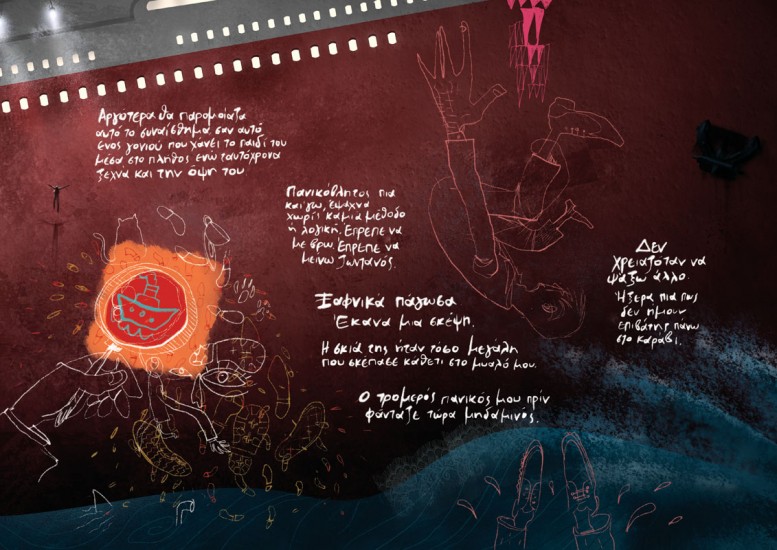 Αργότερα θα παρομοίαζα
αυτό το συναίσθημα σαν αυτό
ενός γονιού που χάνει το παιδί του
μέσα στο πλήθος ενώ ταυτόχρονα
ξεχνά και την όψη του
Πανικόβλητος πια
και γω, έψαχνα
χωρίς καμία μέθοδο
ή λογική. Έπρεπε να
με βρω. Έπρεπε να
μείνω ζωντανός.
Ξαφνικά πάγωσα
Έκανα μια σκέψη.
Η σκιά της ήταν τόσο μεγάλη
που σκέπασε κάθετι στο μυαλό μου.
Ο τρομερός πανικός μου πριν
φάνταζε τώρα μηδαμινός.
Δεν
χρειαζόταν να
ψάξω άλλο.
Ήξερα πια πως
δεν ήμουν
επιβάτης πάνω
στο καράβι.